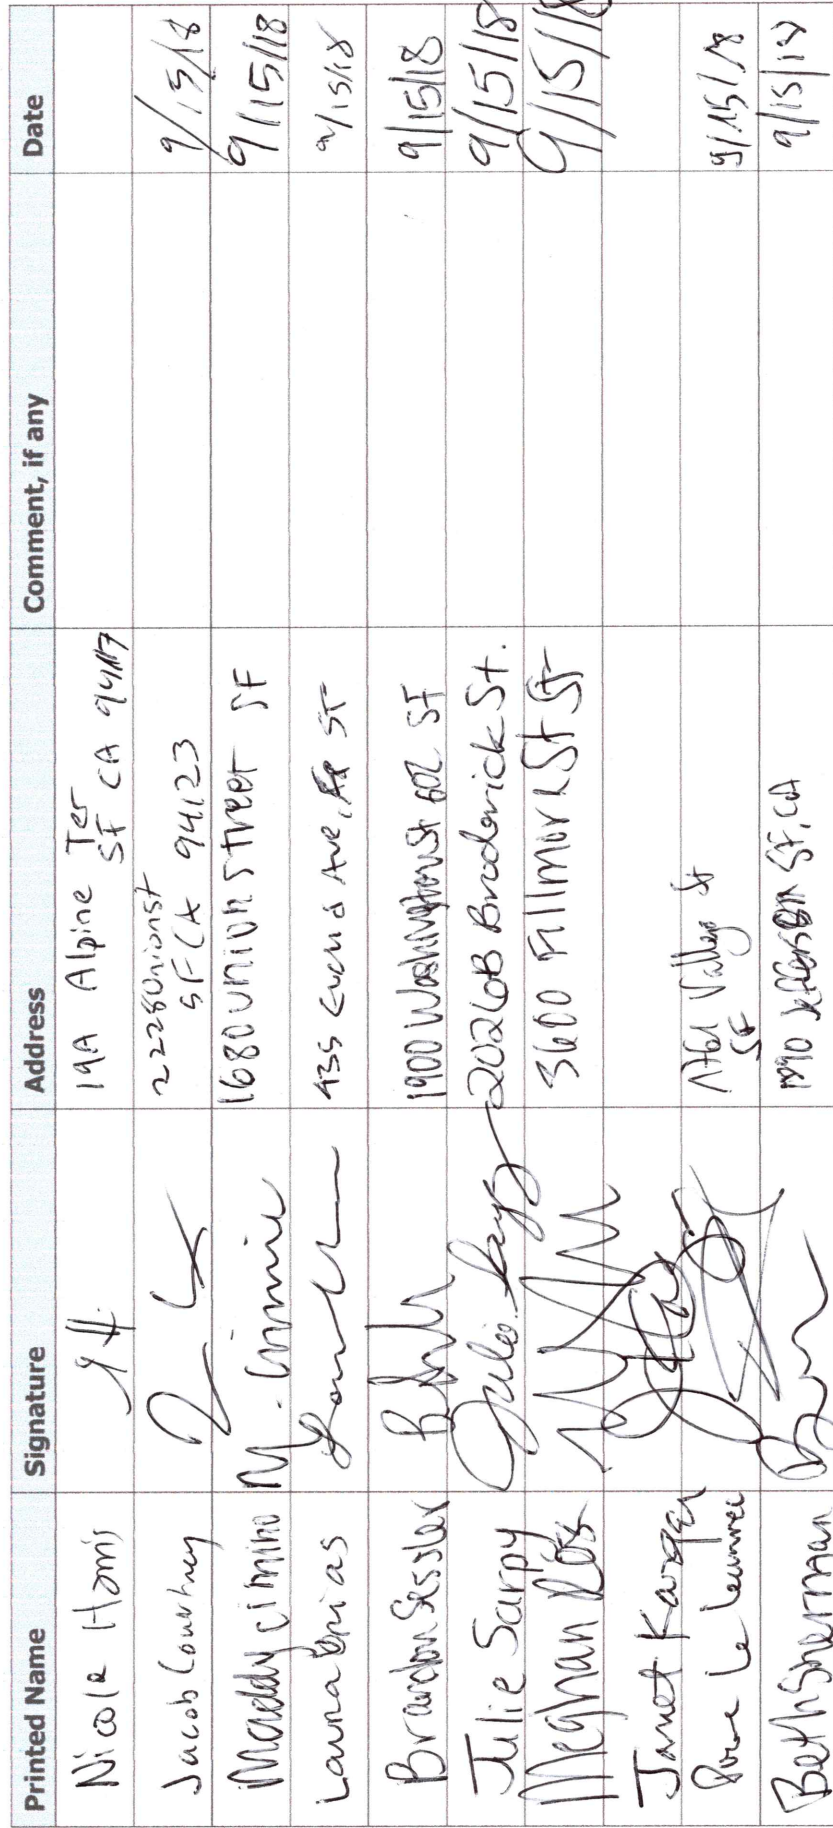 Printed Name Signature Address Comment, if any Date
Nicole Harris 19A Alpine Ter
SF CA 94117
Jacob Courtney 2228 Union st
SF CA 94123 9/15/18
Maddy Cimino M. Cimino 1680 Union Street SF 9/15/18
Laura 435 Euclid Ave, SF 9/15/18
Brandon Sessler 1900 Washington St 602 SF 9/15/18
Julie Sarpy Julie Sarpy 2026B Broderick St. 9/15/18
Meghan 3600 Fillmore St SF 9/15/18
Janet
Le 1761 Vallejo St
SF 9/15/18
Beth Sherman 1890 Jefferson SF, CA 9/15/18